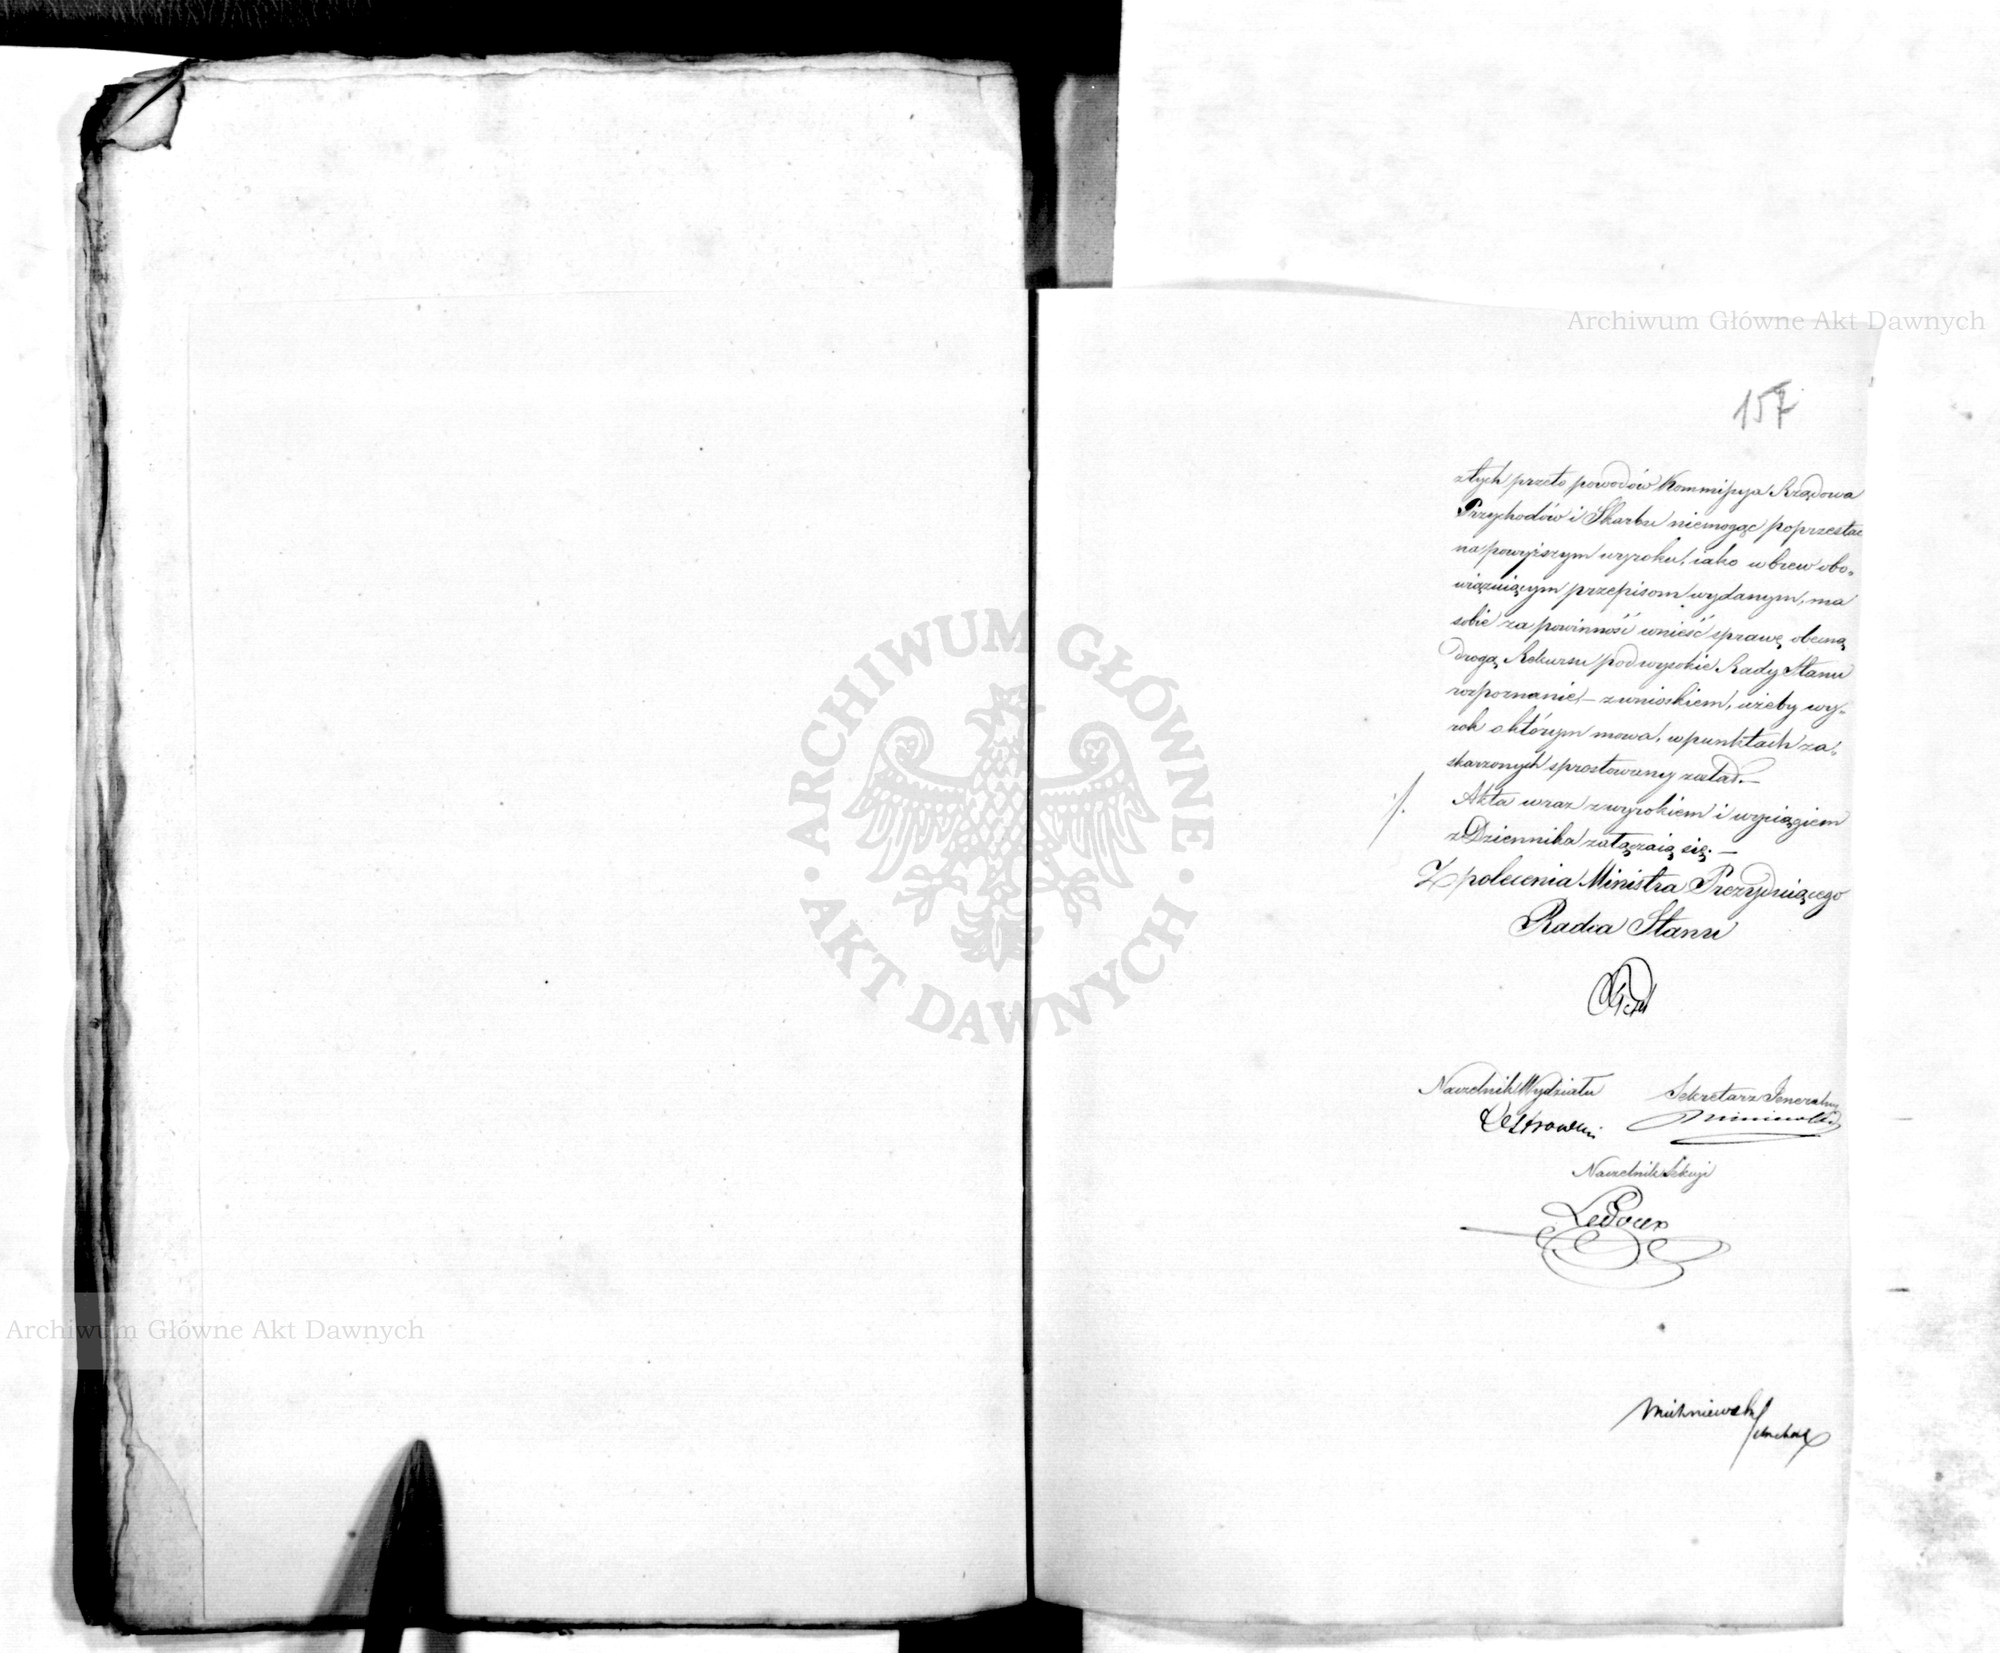 Archiwum Główne Akt Dawnych
157
z tych przeto powodów Kommissya Rządowa
Przychodów i Skarbu niemogąc poprzestać
na powyższym wyroku, iako wbrew obo-
wiązuiącym przepisom wydanym, ma
sobie za powinność wnieść sprawę obecną
drogą Rekursu pod wysokie Rady Stanu
rozpoznanie, — z wnioskiem, iżeby wy-
rok o którym mowa, w punktach za-
skarzonych sprostowany został. —
./. Akta wraz z wyrokiem i wyciągiem
z Dziennika załączaią się. —
Z polecenia Ministra Prezyduiącego
Radca Stanu
Naczelnik Wydziału
Sekretarz Jeneralny
Ostrowski
Naczelnik Sekcyi
Ledoux
Archiwum Główne Akt Dawnych
ARCHIWUM GŁÓWNE
AKT DAWNYCH